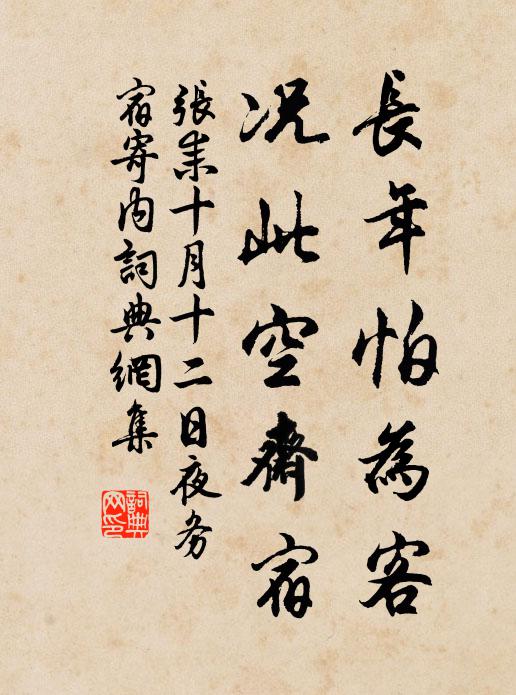 長年怕為客
况此空齋宿
張耒十月十二日夜务
宿寄内詞典網集
詞典网印